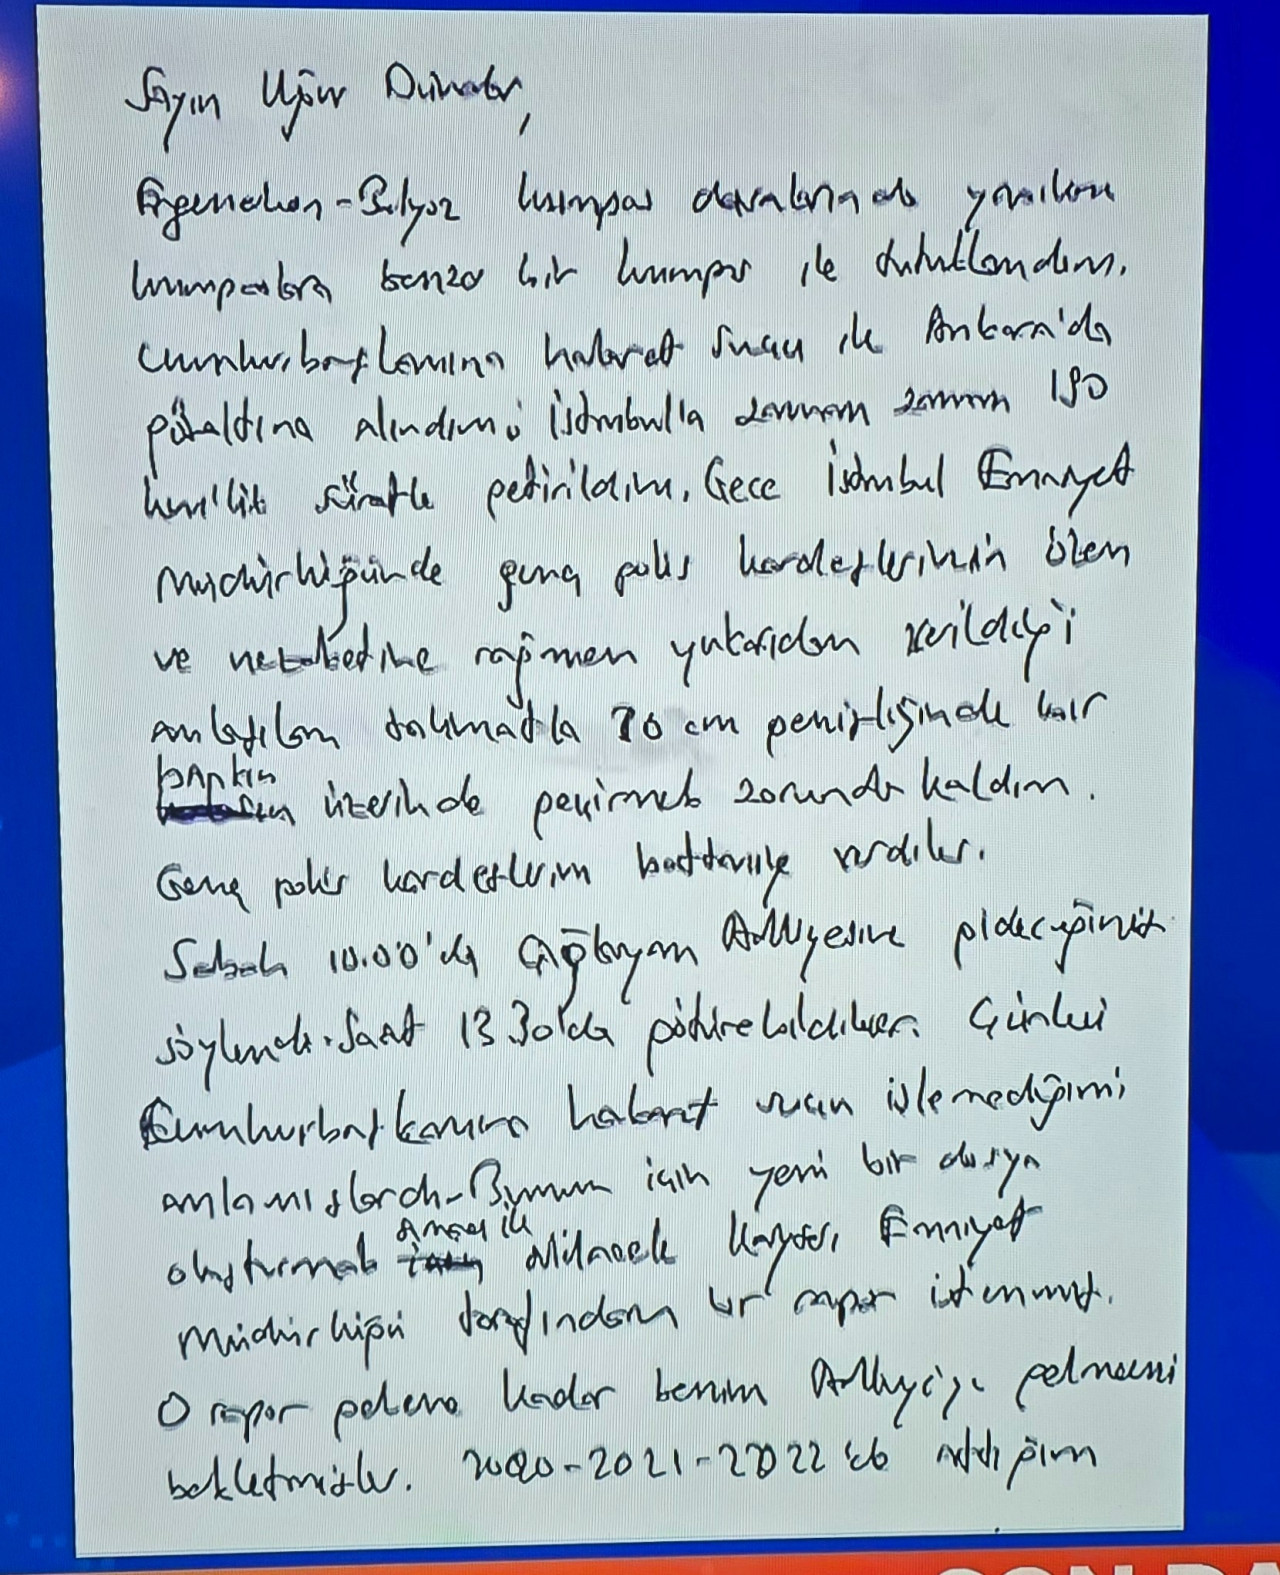 Sayın Uğur Dündar,
Ergenekon-Balyoz kumpas davalarında yapılan
kumpaslara benzer bir kumpas ile tutuklandım.
Cumhurbaşkanına hakaret suçu ile Ankara'da
gözaltına alındım; İstanbul'a zaman zaman 190
km'lik süratle getirildim. Gece İstanbul Emniyet
Müdürlüğünde genç polis kardeşlerinin özen
ve nezaketine rağmen yukarıdan verildiği
anlaşılan talimatla 70 cm genişliğinde bir
bankın üzerinde geçirmek zorunda kaldım.
Genç polis kardeşlerim battaniye verdiler.
Sabah 10.00'da Çağlayan Adliyesine gideceğimiz
söylendi. Saat 13.30'da götürebildiler. Çünkü
Cumhurbaşkanına hakaret suçu işlemediğimi
anlamışlardı. Benim için yeni bir dosya
oluşturmak amacı ile Kayseri Emniyet
Müdürlüğü tarafından bir rapor istenmiş.
O rapor gelene kadar benim Adliyeye gelmemi
bekletmişler. 2020-2021-2022'de attığım